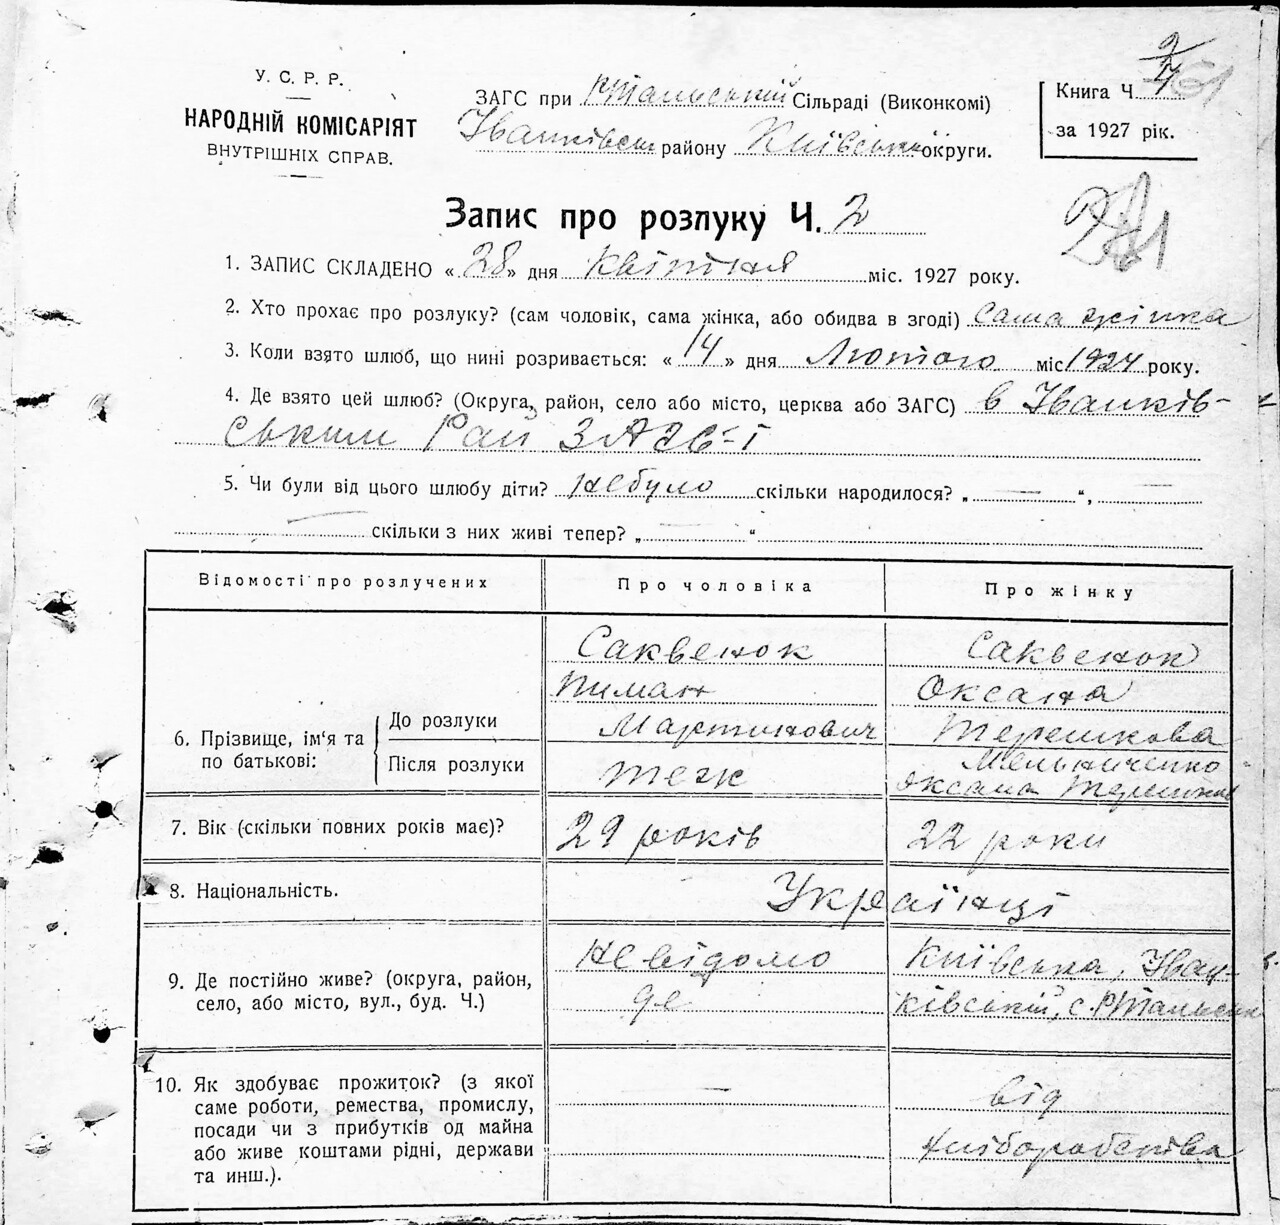 У. С. Р. Р.
НАРОДНІЙ КОМІСАРІЯТ
ВНУТРІШНІХ СПРАВ.
ЗАГС при Р.Тальській Сільраді (Виконкомі)
Іванківськ району Київської округи.
Книга Ч
за 1927 рік.
Запис про розлуку Ч. 2
1. ЗАПИС СКЛАДЕНО « 28 » дня Квітня міс. 1927 року.
2. Хто прохає про розлуку? (сам чоловік, сама жінка, або обидва в згоді) Сама жінка
3. Коли взято шлюб, що нині розривається: « 14 » дня Лютого міс 1924 року.
4. Де взято цей шлюб? (Округа, район, село або місто, церква або ЗАГС) в Іванків-
ським Рай ЗАГС-і
5. Чи були від цього шлюбу діти? небуло скільки народилося? „ — “, —
— скільки з них живі тепер? „ — “
Відомості про розлучених
Про чоловіка
Про жінку
6. Прізвище, ім'я та по батькові:
До розлуки
Після розлуки
Саквенок
Пиман
Мартинович
теж
Саквенок
Оксана
Терешкова
Мельниченко
Оксана Терешков
7. Вік (скільки повних років має)?
29 років
22 роки
8. Національність.
Українці
9. Де постійно живе? (округа, район,
село, або місто, вул., буд. Ч.)
невідомо
де
Київська, Іван-
ківській, с. Р.Тальськ
10. Як здобуває прожиток? (з якої
саме роботи, ремества, промислу,
посади чи з прибутків од майна
або живе коштами рідні, держави
та инш.).
—
від
хліборобства